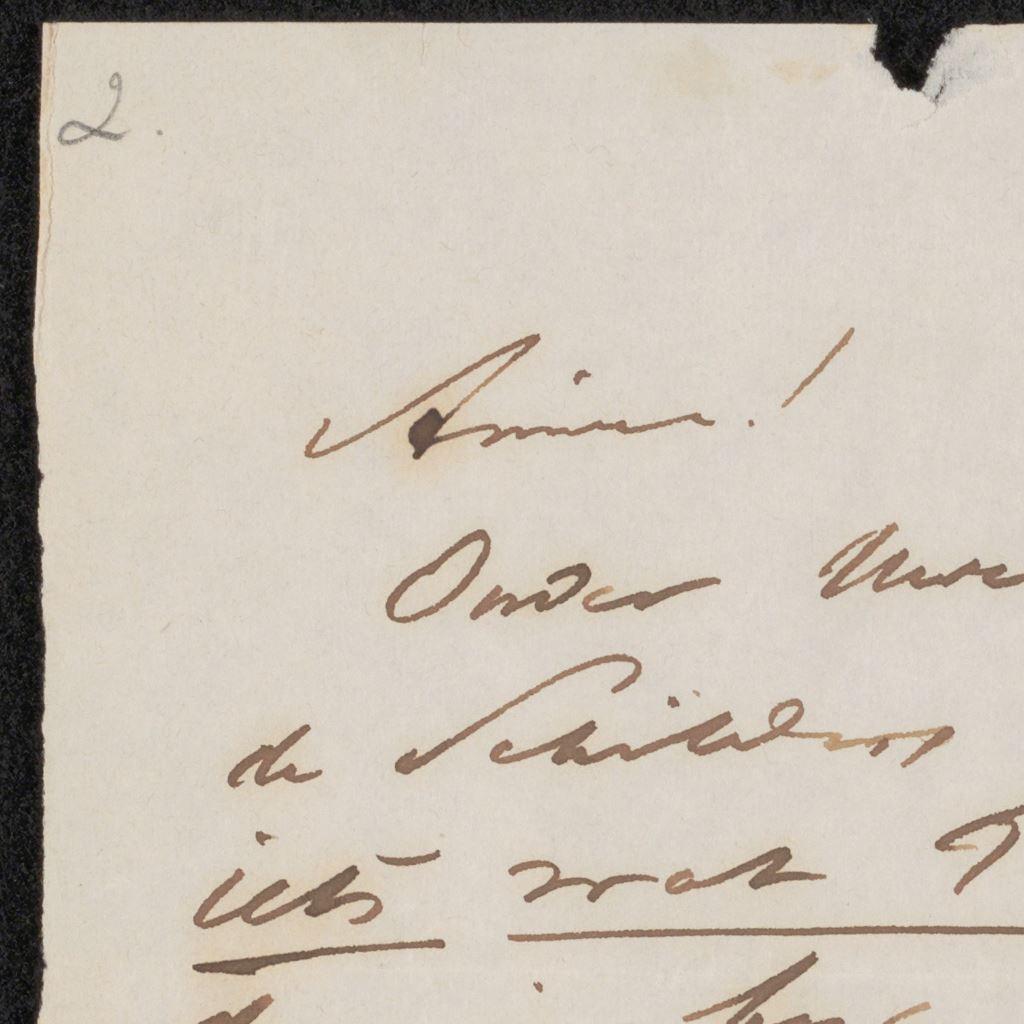 2.
Amice!
Onder
de Schilders
iets wat